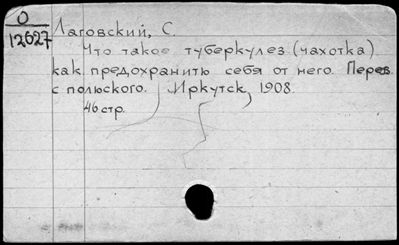 О
12627
Лаговский, С.
Что такое туберкулез (чахотка)
как предохранить себя от него. Перев.
с польского. Иркутск, 1908.
46 стр.